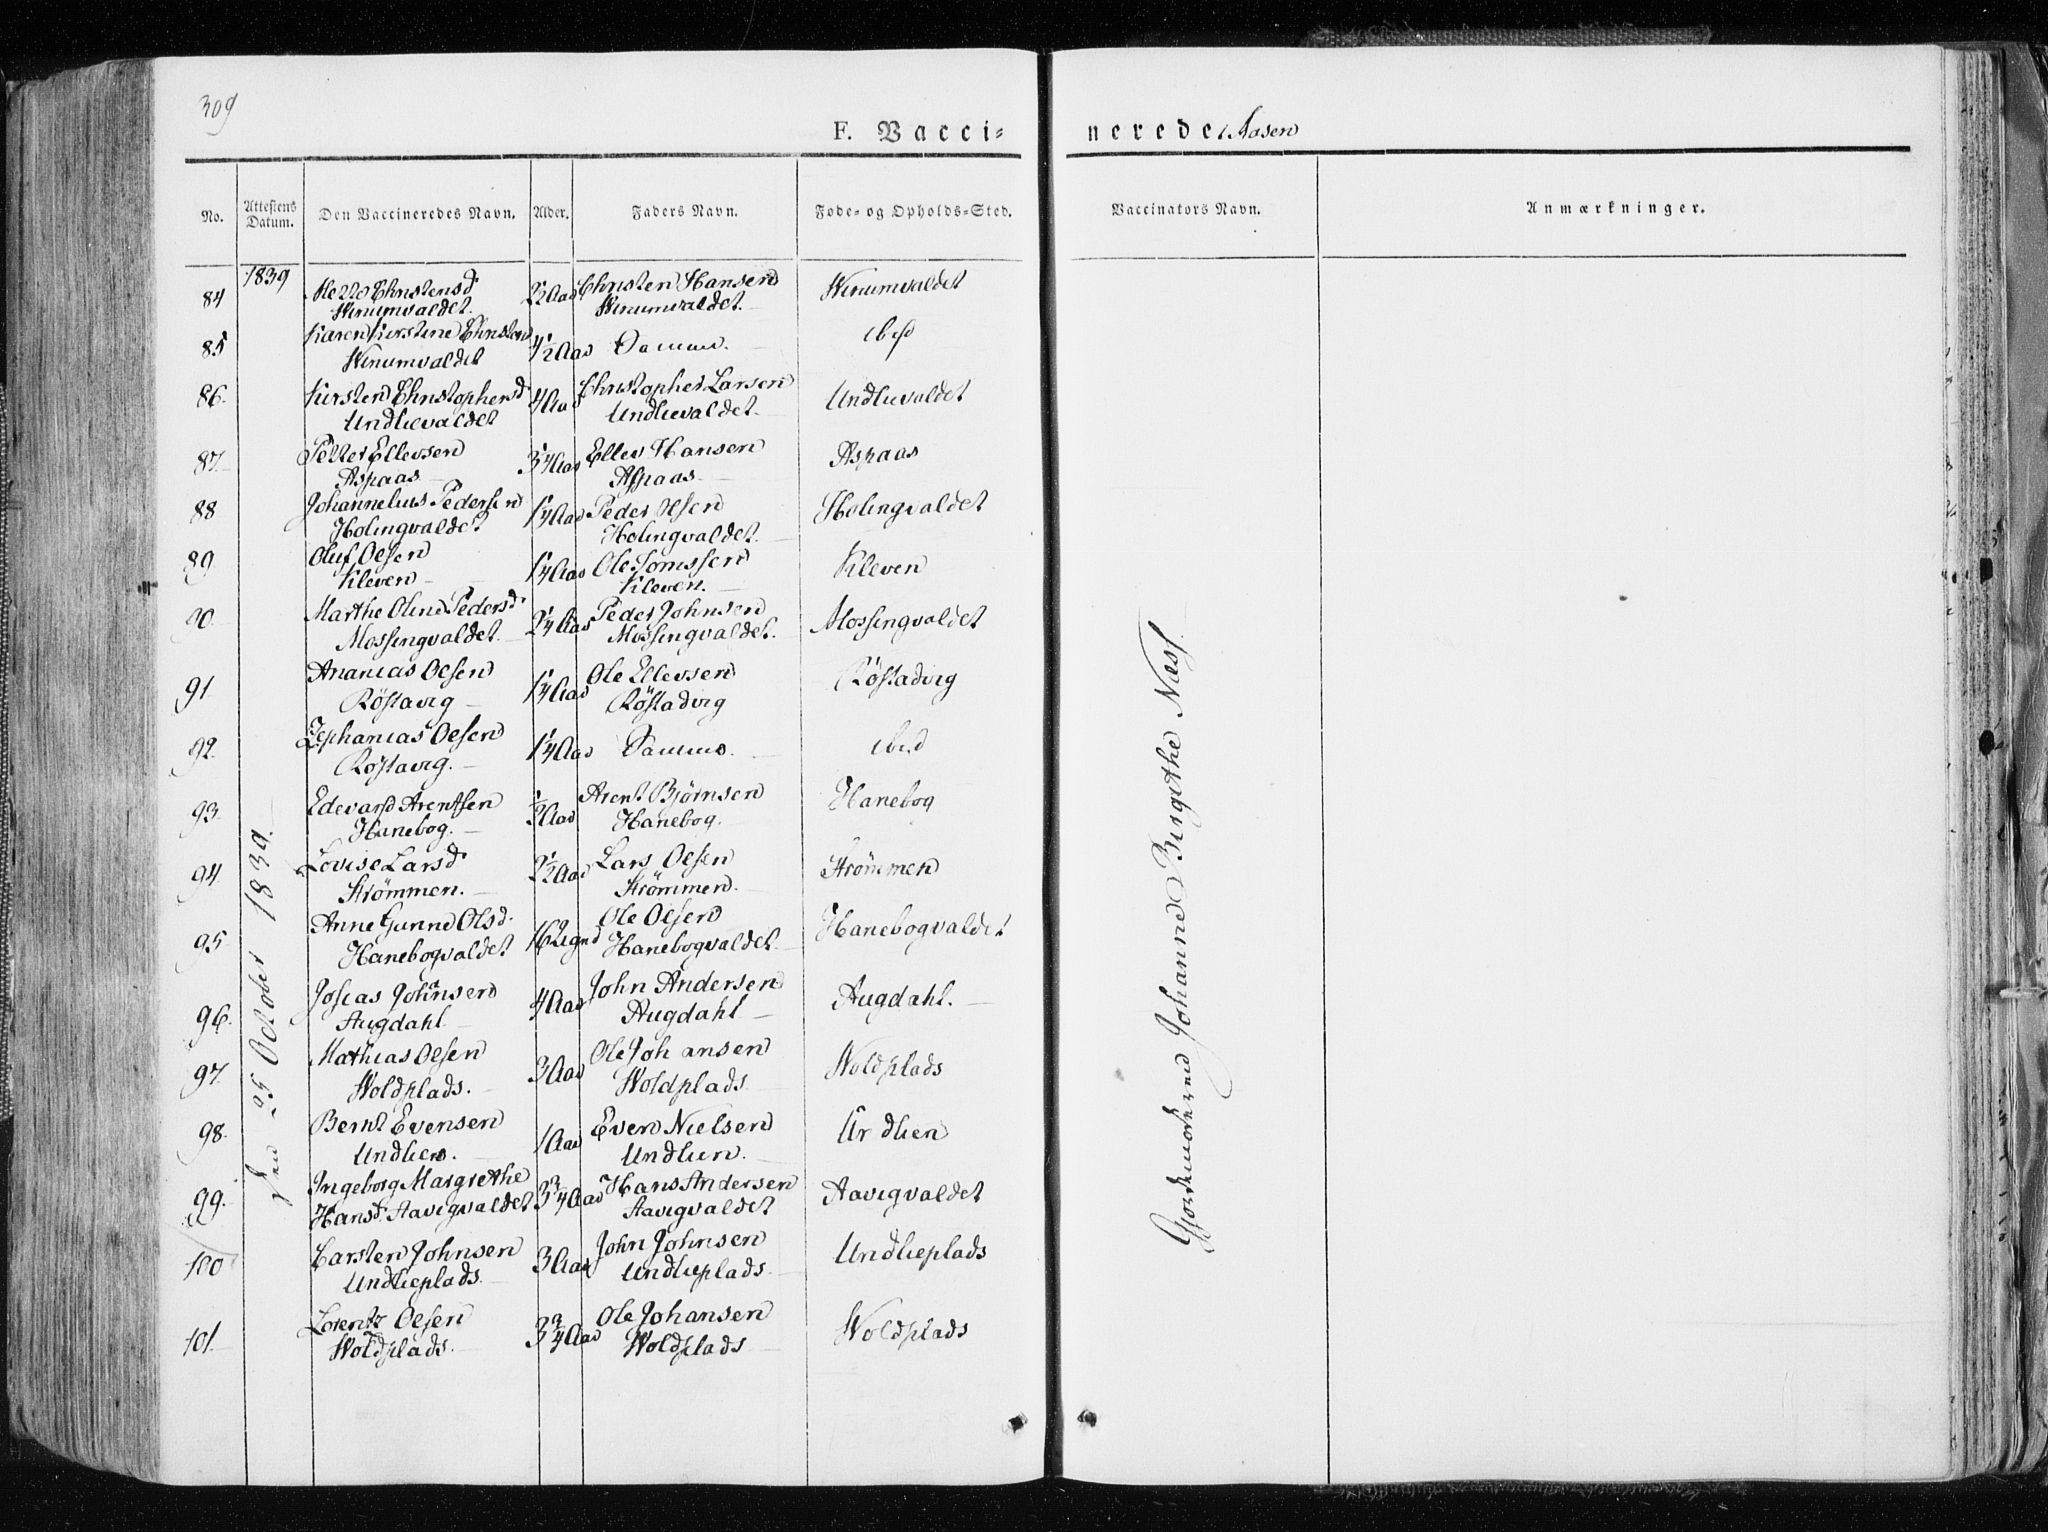 309
F. Vaccinerede i Aasen
No. Attestens Datum. Den Vaccineredes Navn. Alder. Faders Navn. Føde- og Opholds-Sted. Vaccinators Navn. Anmærkninger.
1839
Den 25 October 1839.
84 Mette Christensd 2½ Aar Christen Hansen Winumvaldet
Winumvaldet. Winumvaldet.
85 Karen Kirstine Christensd 4½ Aar Samme. ibid
Winumvaldet
86. Kirsten Christophersd 4 Aar Christopher Larsen Undlievaldet
Undlievaldet Undlievaldet.
87. Petter Ellevsen 3¼ Aar Ellev Hansen Aspaas
Aspaas Aspaas.
88 Johannelius Pedersen 1¼ Aar Peder Olsen Holingvaldet
Holingvaldet Holingvaldet.
89 Oluf Olsen 1¼ Aar Ole Tomssen Kleven
Kleven Kleven.
90 Marthe Oline Pedersd 2¼ Aar Peder Johnsen Mossingvaldet
Mossingvaldet. Mossingvaldet.
91. Ananias Olsen 1¼ Aar Ole Ellevsen Röstadvig
Röstavig Röstadvig
92. Zephanias Olsen 1¼ Aar Samme. ibid
Röstavig.
93. Edevard Arentsen ½ Aar Arent Björnsen Hanebog
Hanebog. Hanebog.
94. Lovise Larsd 2½ Aar Lars Olsen Strömmen
Strömmen. Strömmen.
95. Anne Gunne Olsd. 16 Ugned Ole Olsen Hanebogvaldet
Hanebogvaldet Hanebogvaldet
96. Josias Johnsen 4 Aar John Andersen Augdahl.
Augdahl Augdahl
97. Mathias Olsen 3 Aar Ole Johansen Woldplads
Woldplads. Woldplads
98. Bernt Evensen 1 Aar Even Nielsen Undlien
Undlien. Undlien.
99. Ingeborg Margrethe 3¾ Aar Hans Andersen Aavigvaldet
Hansd. Aavigvaldet Aavigvaldet
100 Carsten Johnsen 3 Aar John Johnsen Undlieplads
Undlieplads. Undlieplads.
101. Lorentz Olsen 3¾ Aar Ole Johansen Woldplads
Woldplads. Woldplads
Gjordemoderen Johanne Birgithe Næss.